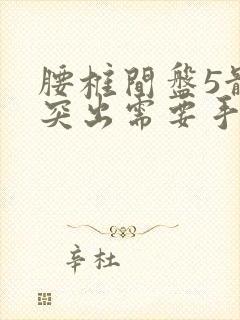 腰柱間盤5
突出需要手
辛杜